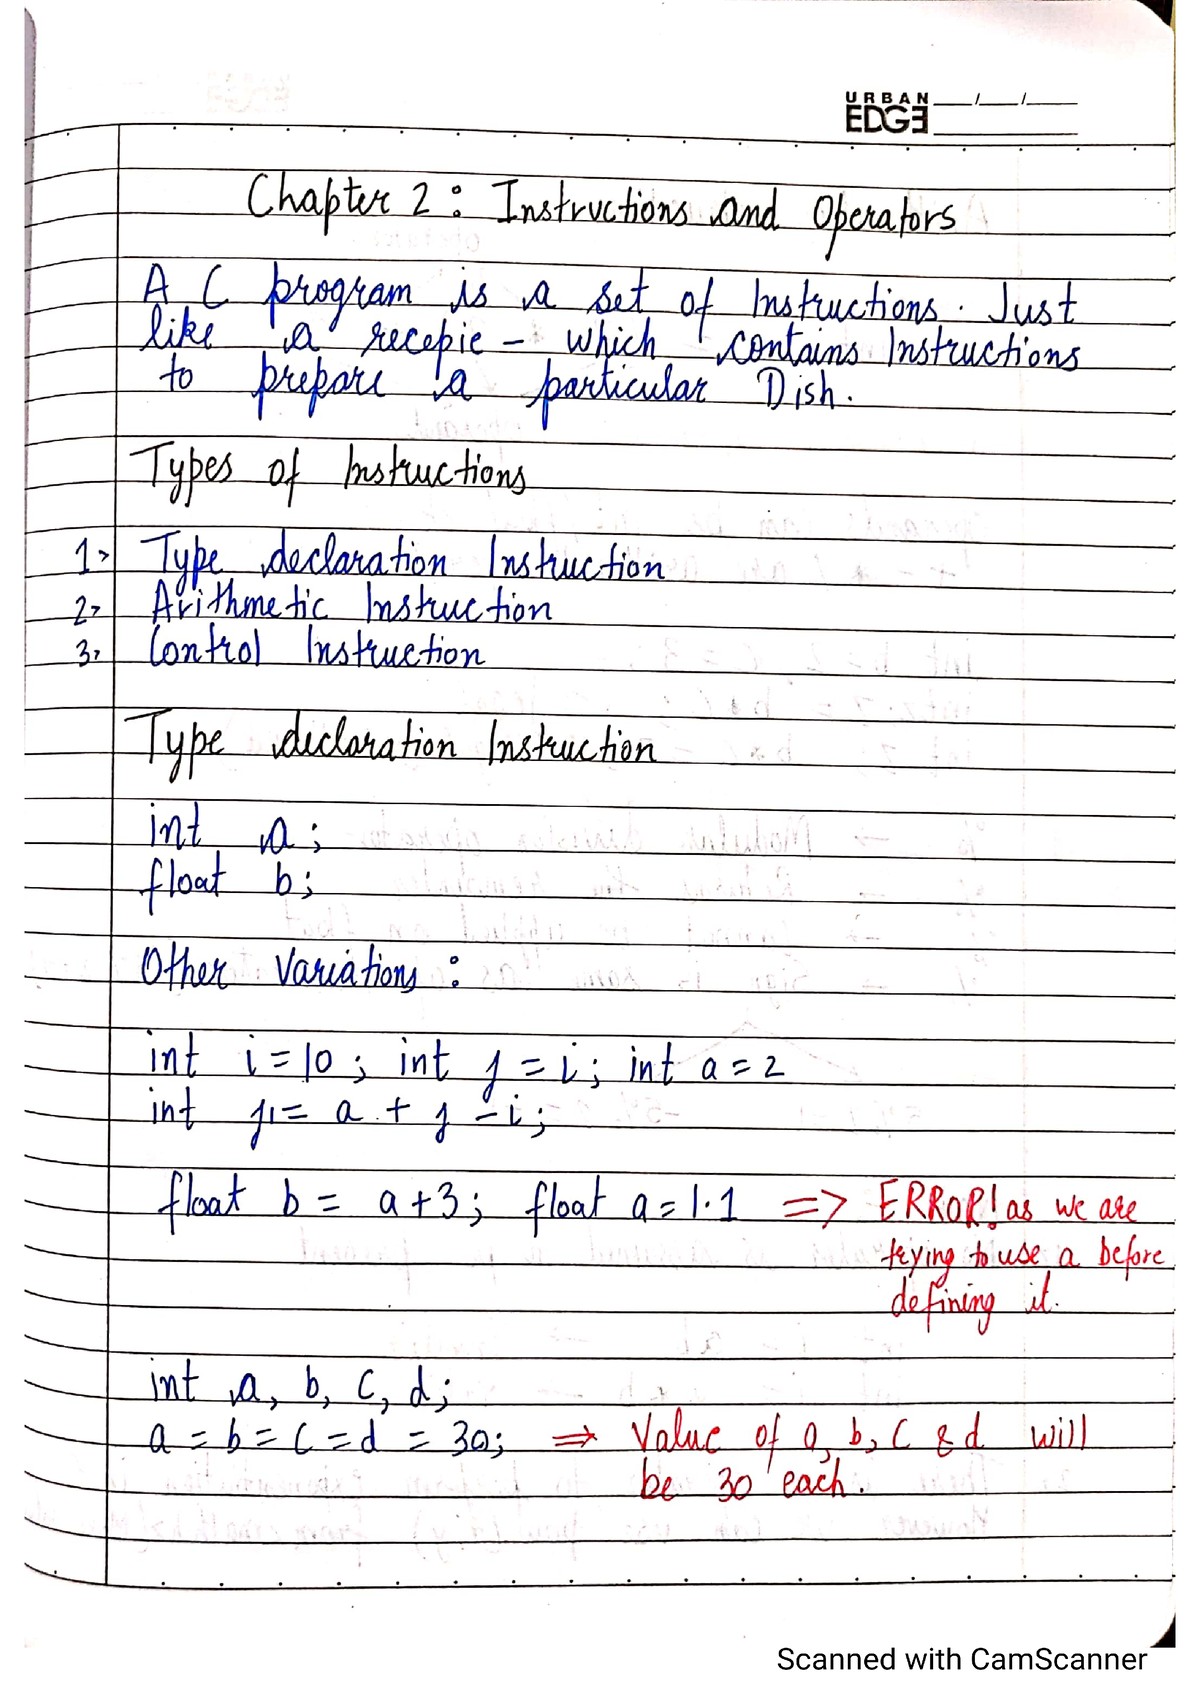 URBAN
EDGE
Chapter 2: Instructions and Operators
A C program is a set of Instructions. Just
like a recepie - which contains Instructions
to prepare a particular Dish.
Types of Instructions
1> Type declaration Instruction
2> Arithmetic Instruction
3> Control Instruction
Type declaration Instruction
int a;
float b;
Other Variations:
int i=10; int j=i; int a=2
int j1= a + j - i;
float b = a+3; float a=1.1 => ERROR! as we are
trying to use a before
defining it.
int a, b, c, d;
a = b = c = d = 30; => Value of a, b, c & d will
be 30 each.
Scanned with CamScanner